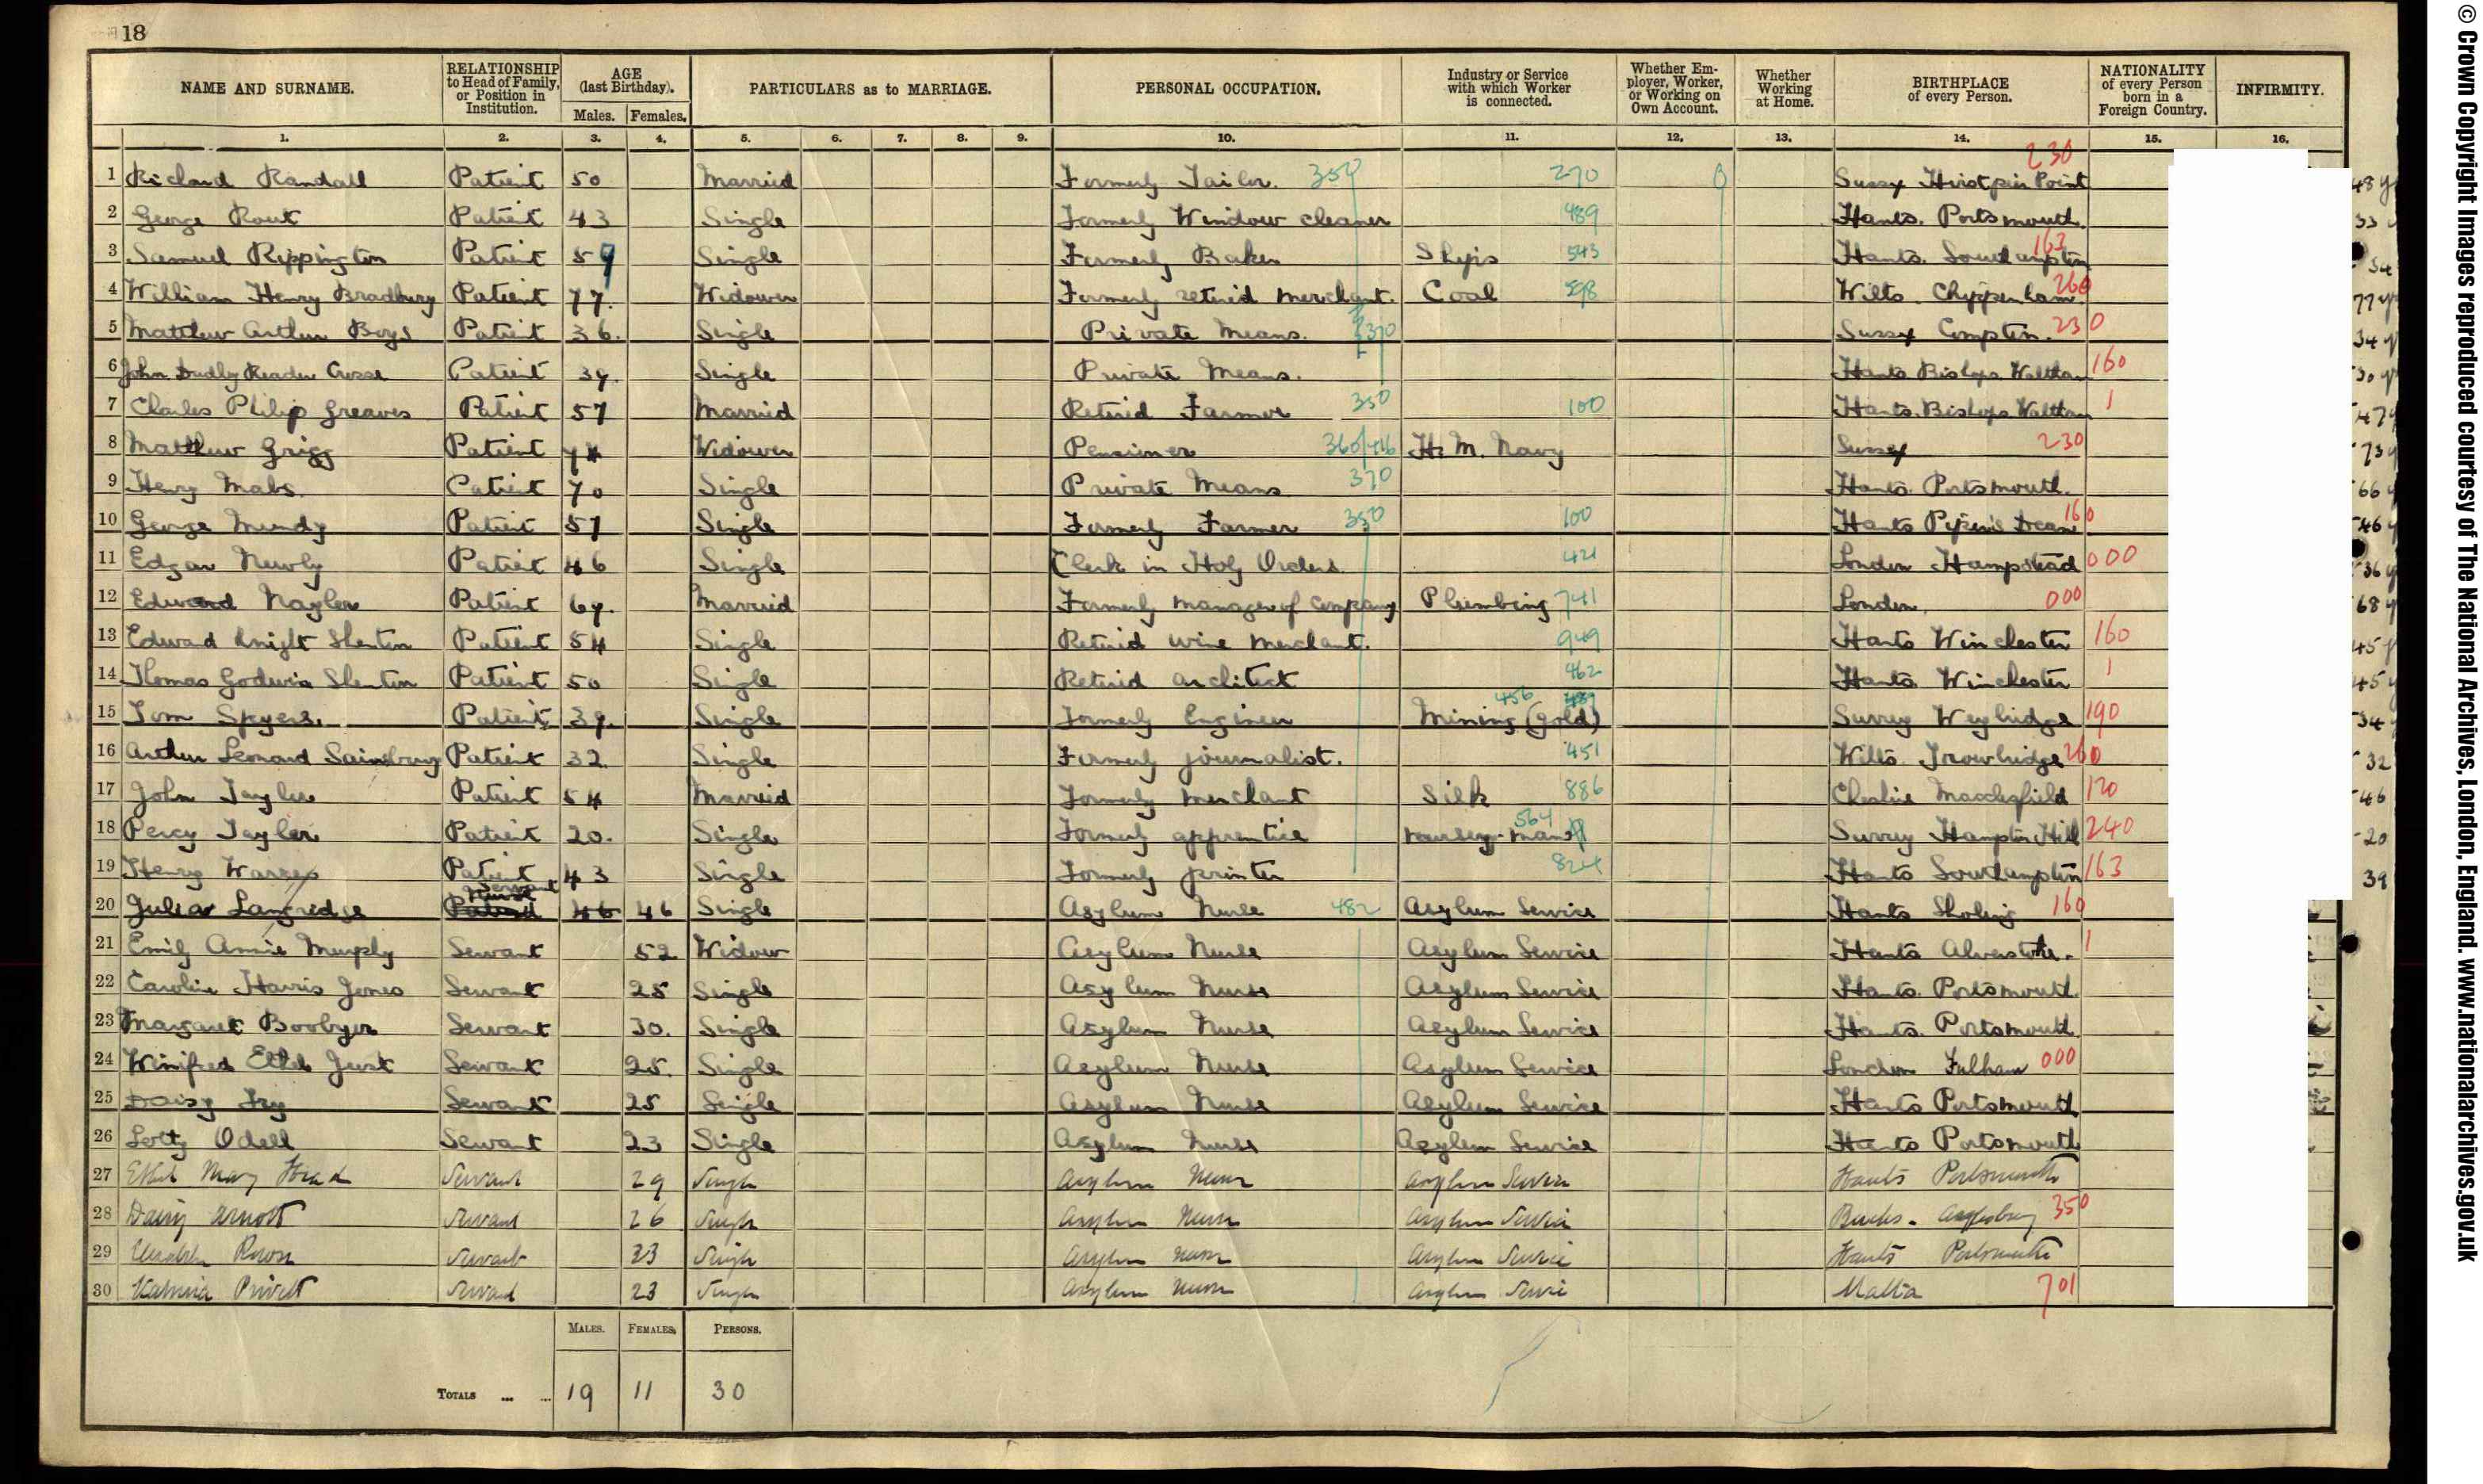 18
NAME AND SURNAME. RELATIONSHIP to Head of Family, or Position in Institution. AGE (last Birthday). Males. Females. PARTICULARS as to MARRIAGE. PERSONAL OCCUPATION. Industry or Service with which Worker is connected. Whether Employer, Worker, or Working on Own Account. Whether Working at Home. BIRTHPLACE of every Person. NATIONALITY of every Person born in a Foreign Country. INFIRMITY.
1. 2. 3. 4. 5. 6. 7. 8. 9. 10. 11. 12. 13. 14. 15. 16.
1 Richard Randall Patient 50 Married Formerly Tailor. 350 270 0 Sussex Hurstpier Point 230
2 George Rout Patient 43 Single Formerly Window cleaner 489 Hants. Portsmouth.
3 Samuel Rippington Patient 59 Single Formerly Baker Ships 543 Hants. Southampton 163
4 William Henry Bradbury Patient 77. Widower Formerly retired merchant. Coal 598 Wilts. Chippenham. 260
5 Matthew Arthur Boys Patient 36. Single Private Means. 370 Sussex Compton. 230
6 John Dudley Reader Crosse Patient 39. Single Private Means. Hants Bishops Waltham 160
7 Charles Philip Greaves Patient 57 Married Retired Farmer 350 100 Hants. Bishops Waltham 1
8 Matthew Grigg Patient 74 Widower Pensioner 360/416 H. M. Navy Sussex 230
9 Henry Mabs. Patient 70 Single Private Means 370 Hants. Portsmouth.
10 George Mundy Patient 57 Single Formerly Farmer 350 100 Hants 160
11 Edgar Newly Patient 46 Single Clerk in Holy Orders. 421 London Hampstead 000
12 Edward Nayler Patient 69. Married Formerly manager of Company Plumbing 741 London. 000
13 Edward Knight Shenton Patient 54 Single Retired wine merchant. 949 Hants Winchester 160
14 Thomas Godwin Shenton Patient 50 Single Retired architect 462 Hants Winchester 1
15 Tom Spyers. Patient 39. Single Formerly Engineer 456 Mining (Gold) Surrey Weybridge 190
16 Arthur Leonard Sainsbury Patient 32. Single Formerly journalist. 451 Wilts. Trowbridge 260
17 John Taylor Patient 54 Married Formerly merchant Silk 886 Cheshire Macclesfield 120
18 Percy Tayler Patient 20. Single Formerly apprentice nursery-man 564 Surrey Hampton Hill 240
19 Henry Warren Patient 43 Single Formerly printer 824 Hants Southampton 163
20 Julia Langridge Patient Nurse Servant 46 46 Single Asylum Nurse 482 Asylum Service Hants Sholing 160
21 Emily Annie Murphy Servant 52 Widow Asylum Nurse Asylum Service Hants Alverstoke. 1
22 Caroline Harris Jones Servant 25 Single Asylum Nurse Asylum Service Hants. Portsmouth.
23 Margaret Boobyer Servant 30. Single Asylum Nurse Asylum Service Hants. Portsmouth
24 Winifred Ethel Just Servant 25. Single Asylum Nurse Asylum Service London Fulham 000
25 Daisy Fry Servant 25 Single Asylum Nurse Asylum Service Hants Portsmouth
26 Lotty Odell Servant 23 Single Asylum Nurse Asylum Service Hants Portsmouth
27 Ethel May Head Servant 29 Single Asylum Nurse Asylum Service Hants Portsmouth
28 Daisy Arnott Servant 26 Single Asylum Nurse Asylum Service Bucks. Aylesbury 350
29 Elizabeth Servant 23 Single Asylum Nurse Asylum Service Hants Portsmouth
30 Privett Servant 23 Single Asylum Nurse Asylum Service Malta 701
MALES. FEMALES. PERSONS.
TOTALS ... ... 19 11 30
© Crown Copyright Images reproduced courtesy of The National Archives, London, England. www.nationalarchives.gov.uk